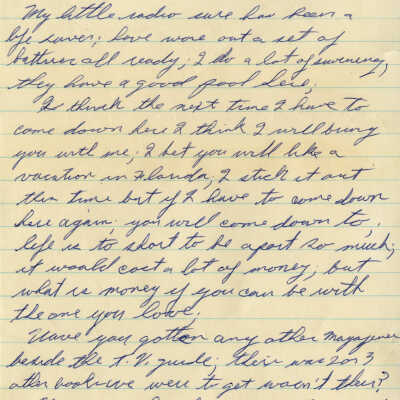 My little radio sure has been a
life saver; have wore out a set of
batteries all ready; I do a lot of swimming,
they have a good pool here;
I think the next time I have to
come down here I think I will bring
you with me; I bet you will like a
vacation in Florida; I stick it out
this time but if I have to come down
here again; you will come down to,
life is to short to be apart so much;
it would cost a lot of money, but
what is money if you can be with
the one you love.
Have you gotton any other magazines
beside the T.V. guide; their was 2 or 3
other books we were to get wasn't their?